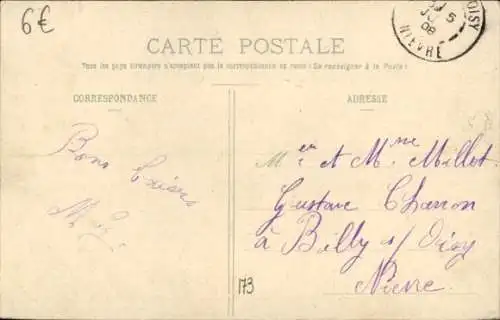 6€
OISY
5
08
NIEVRE
CARTE POSTALE
Tous les pays étrangers n'acceptent pas la correspondance au recto (Se renseigner à la Poste)
CORRESPONDANCE
ADRESSE
Bons
Mr et Mme Millot
Gustave Charron
à Billy s/ Oisy
Nièvre
173